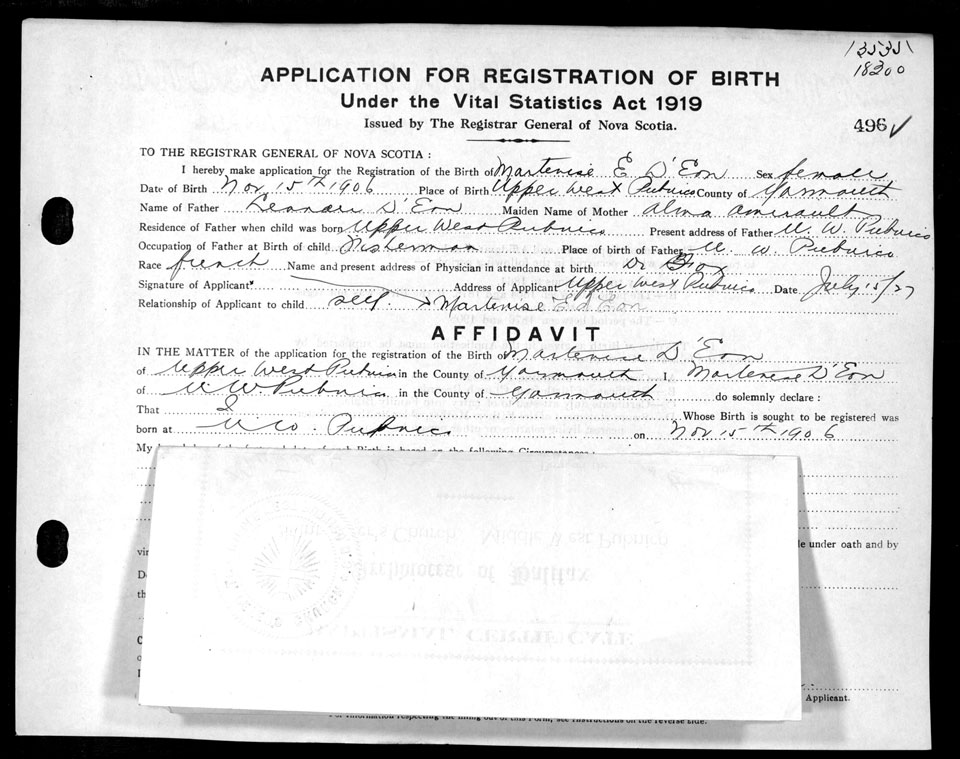 13535
18200
APPLICATION FOR REGISTRATION OF BIRTH
Under the Vital Statistics Act 1919
Issued by The Registrar General of Nova Scotia.
496 ✓
TO THE REGISTRAR GENERAL OF NOVA SCOTIA :
I hereby make application for the Registration of the Birth of Martenise E D'Eon Sex female
Date of Birth Nov 15th 1906 Place of Birth Upper West Pubnico County of Yarmouth
Name of Father Leander D'Eon Maiden Name of Mother Alma Amirault
Residence of Father when child was born Upper West Pubnico Present address of Father U. W. Pubnico
Occupation of Father at Birth of child Fisherman Place of birth of Father U. W. Pubnico
Race french Name and present address of Physician in attendance at birth Dr Fox
Signature of Applicant Address of Applicant Upper West Pubnico Date July 15/27
Relationship of Applicant to child self. Martenise E D'Eon
AFFIDAVIT
IN THE MATTER of the application for the registration of the Birth of Martenise D'Eon
of Upper West Pubnico in the County of Yarmouth I, Martenise D'Eon
of U. W. Pubnico in the County of Yarmouth do solemnly declare :
That I Whose Birth is sought to be registered was
born at U W. Pubnico on Nov 15th 1906
My
of such Birth is based on the following Circumstances :
le under oath and by
Applicant.
For information respecting the filling out of this Form, see instructions on the reverse side.